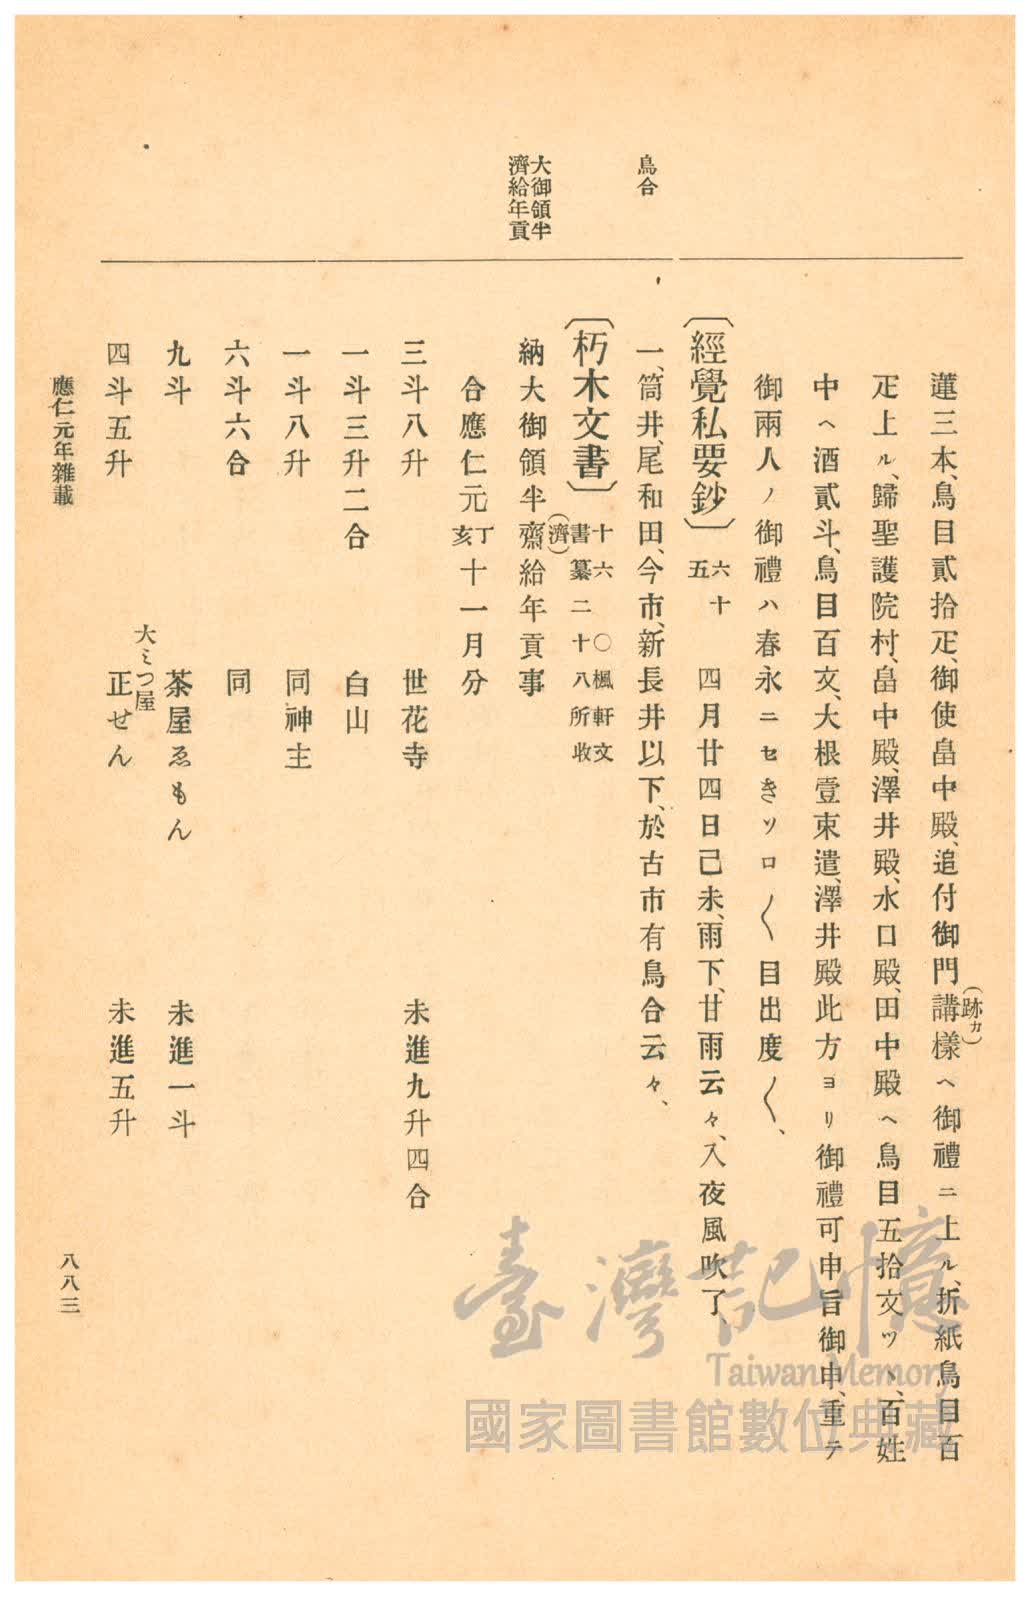 鳥合
大御領半
濟給年貢
蓮三本、鳥目貳拾疋、御使畠中殿、追付御門講樣ヘ御禮ニ上ル、折紙鳥目百
(跡カ)
疋上ル、歸聖護院村、畠中殿、澤井殿、水口殿、田中殿ヘ鳥目五拾文ツヽ、百姓
中ヘ酒貳斗、鳥目百文、大根壹束遣、澤井殿此方ヨリ御禮可申旨御申、重テ
御兩人ノ御禮ハ春永ニセきソロ〱目出度〱、
〔經覺私要鈔〕 六十五 四月廿四日己未、雨下、甘雨云々、入夜風吹了、
一、筒井、尾和田、今市、新長井以下、於古市有鳥合云々、
〔朽木文書〕 十六 ○楓軒文書纂二十八所收
納大御領半齋給年貢事
(濟)
合應仁元丁亥十一月分
三斗八升 世花寺 未進九升四合
一斗三升二合 白山
一斗八升 同神主
六斗六合 同
九斗 茶屋ゑもん 未進一斗
大ミつ屋
四斗五升 正せん 未進五升
應仁元年雜載
八八三
臺灣記憶
Taiwan Memory
國家圖書館數位典藏